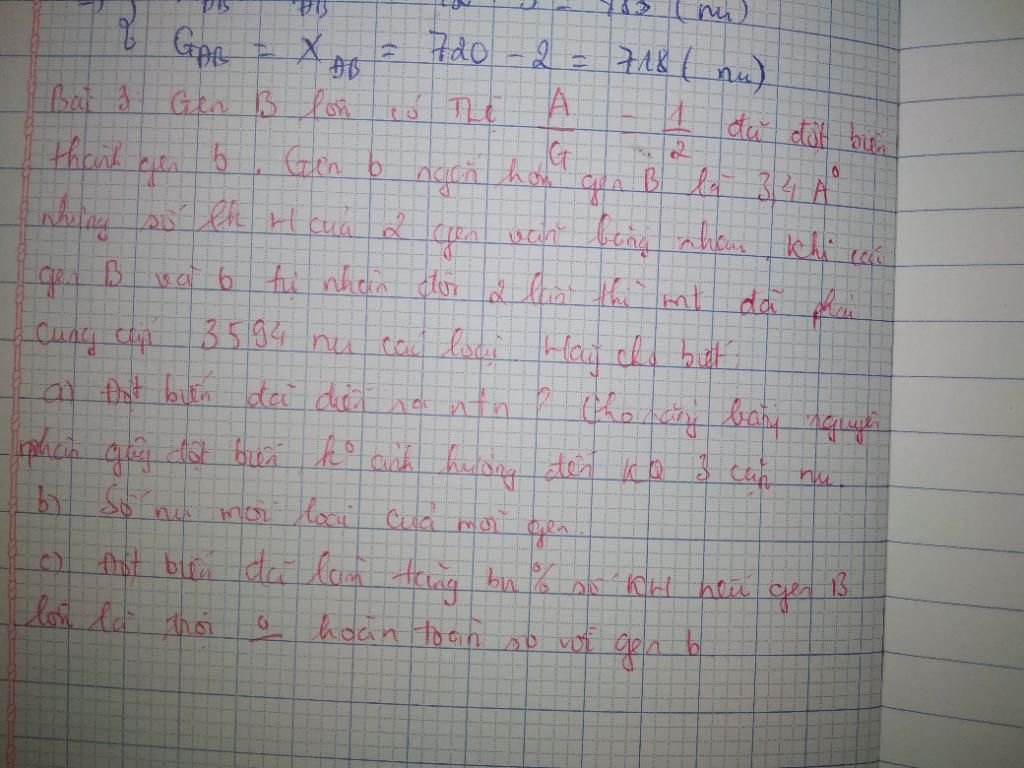 = 783 (nu)
G ĐB = X ĐB = 720 - 2 = 718 (nu)
Bài 3: Gen B lớn có Tlệ A/G = 1/2 đã đột biến
thành gen b. Gen b ngắn hơn gen B là 3,4 A⁰
nhưng số lk H của 2 gen vẫn bằng nhau. Khi các
gen B và b tự nhân đôi 2 lần thì mt đã phải
cung cấp 3594 nu các loại. Hãy cho biết:
a) Đột biến đã diễn ra ntn? Cho rằng bằng nguyên
nhân gây đột biến k⁰ ảnh hưởng đến KQ 3 cặp nu.
b) Số nu mỗi loại của mỗi gen.
c) Đột biến đã làm tăng bn % số KH nếu gen B
lớn là trội hoàn toàn so với gen b